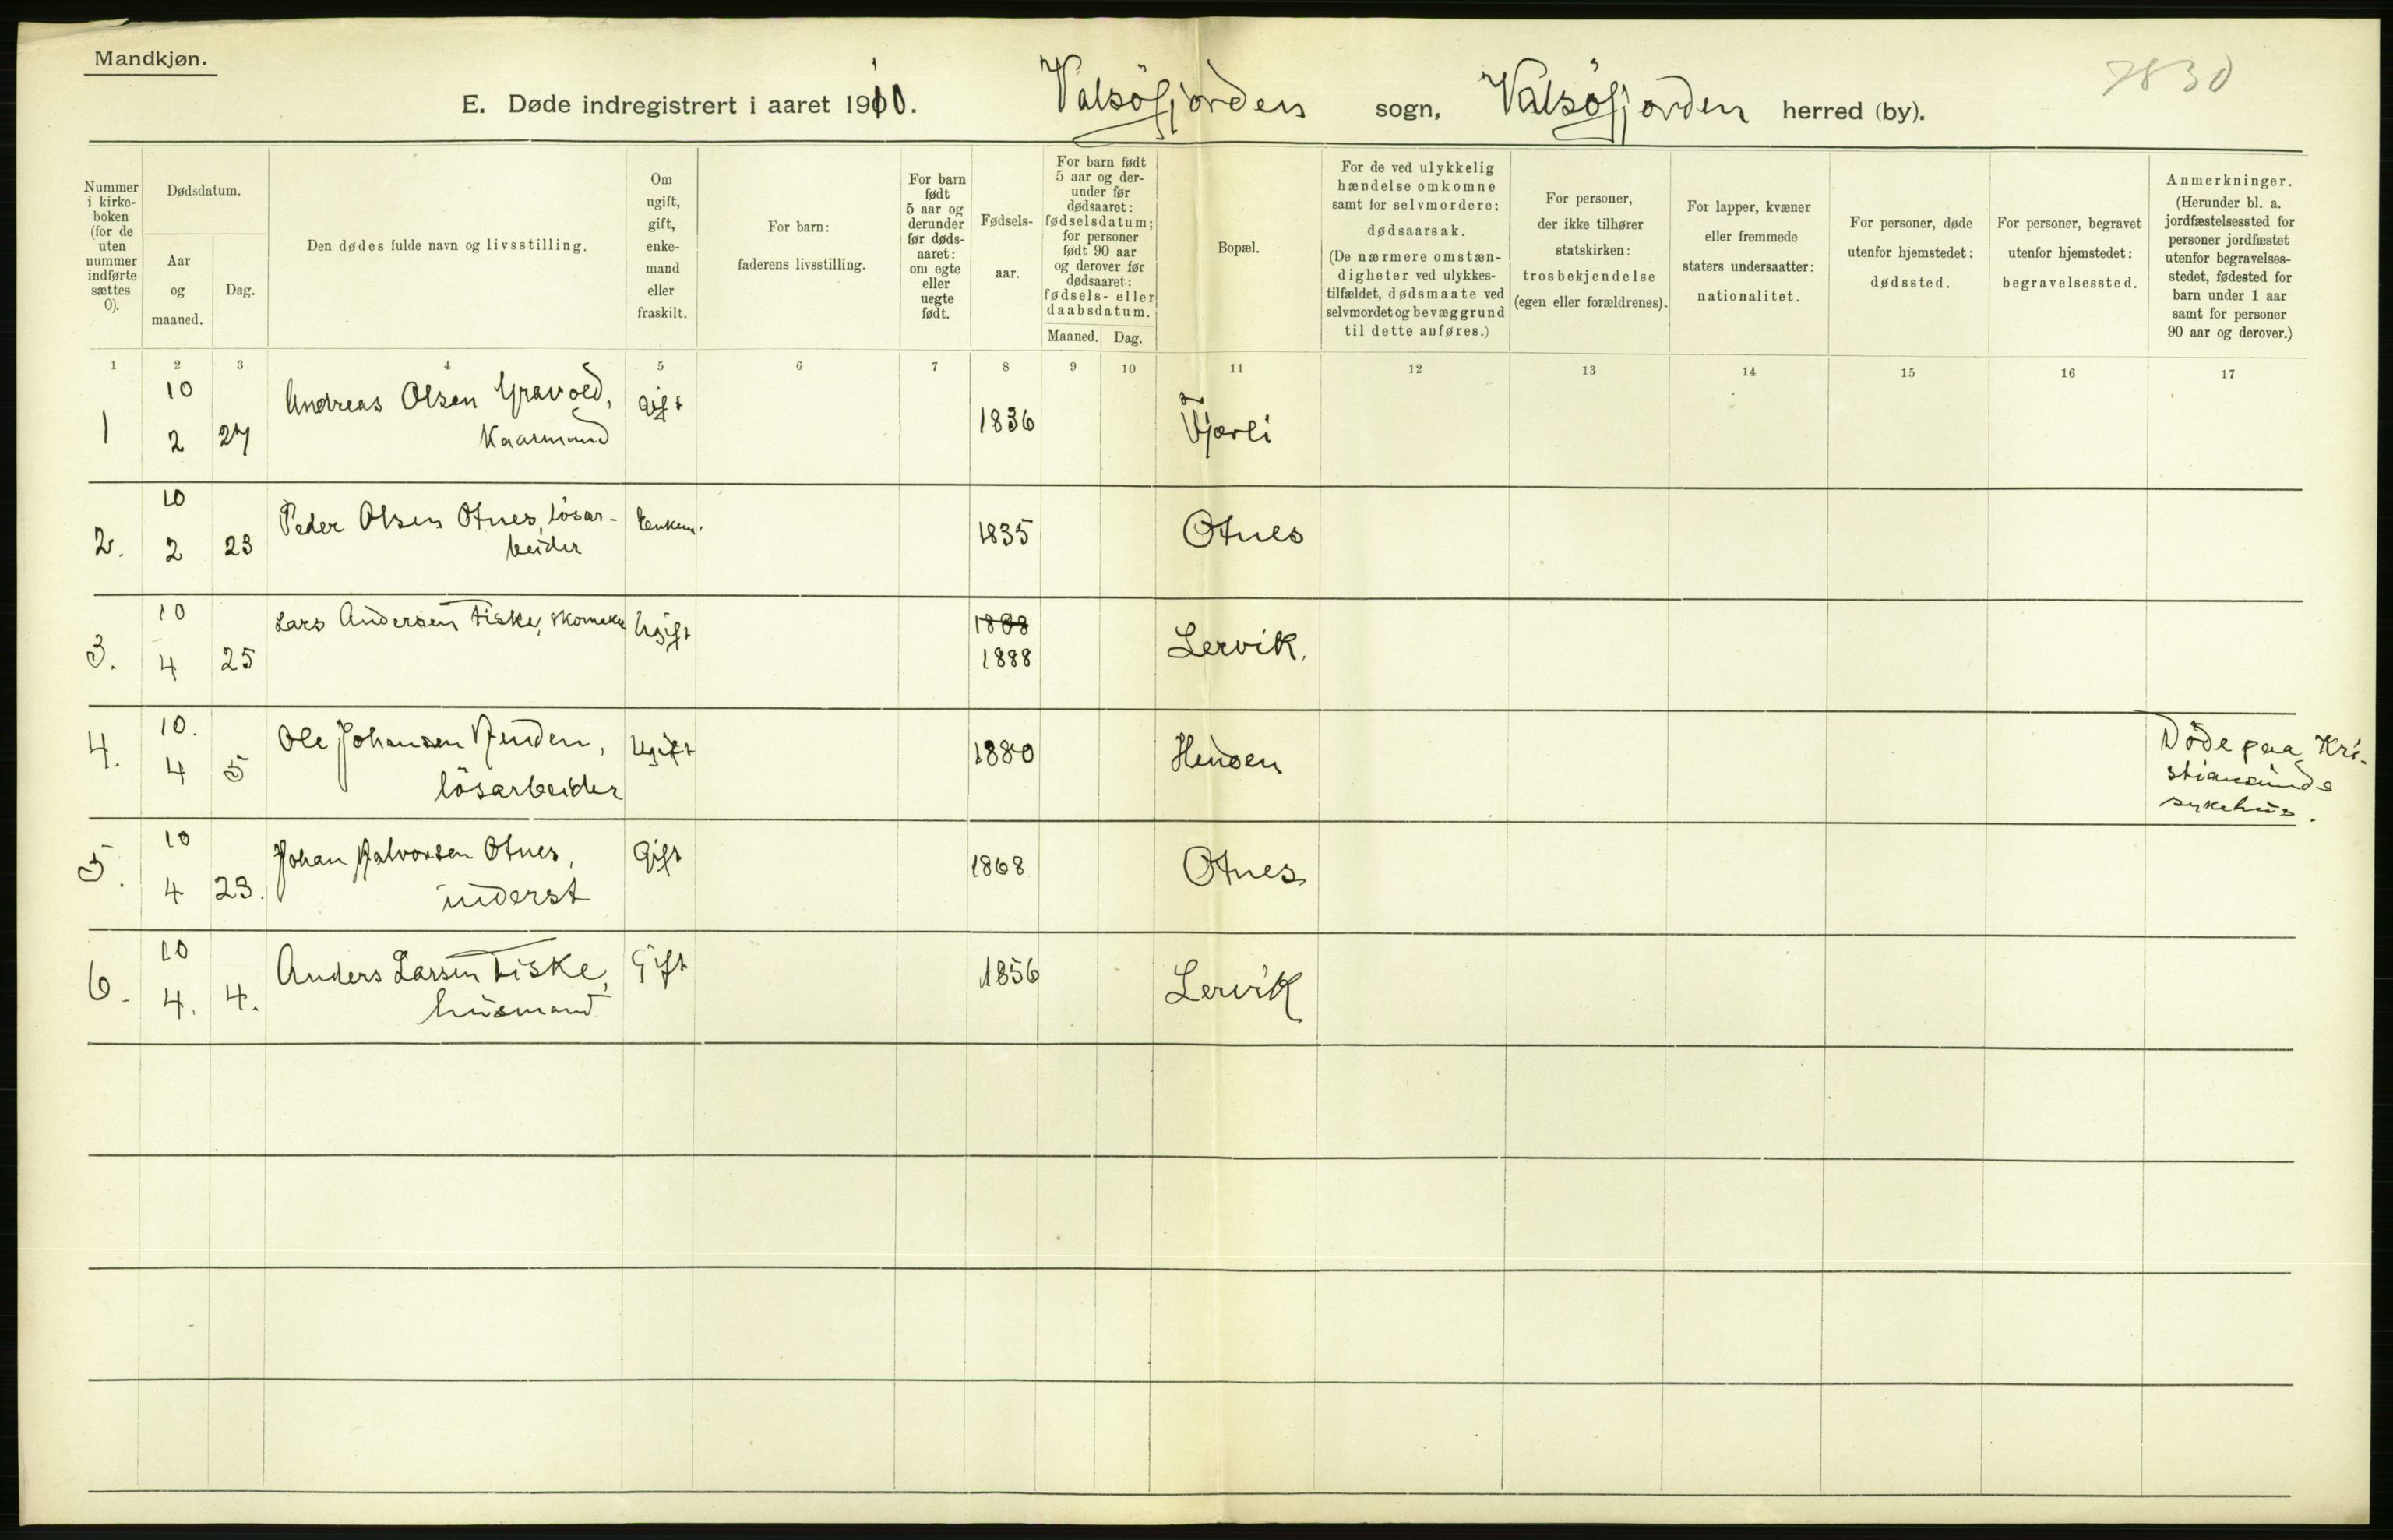 Mandkjøn.
7830
E. Døde indregistrert i aaret 1910. Valsöfjordens sogn, Valsöfjorden herred (by).
Nummer i kirke- boken (for de uten nummer indførte sættes 0).
Dødsdatum.
Aar og maaned.
Dag.
Den dødes fulde navn og livsstilling.
Om ugift, gift, enke- mand eller fraskilt.
For barn: faderens livsstilling.
For barn født 5 aar og derunder før døds- aaret: om egte eller uegte født.
Fødsels- aar.
For barn født 5 aar og der- under før dødsaaret: fødselsdatum; for personer født 90 aar og derover før dødsaaret: fødsels- eller daabsdatum.
Maaned. Dag.
Bopæl.
For de ved ulykkelig hændelse omkomne samt for selvmordere: dødsaarsak. (De nærmere omstæn- digheter ved ulykkes- tilfældet, dødsmaate ved selvmordet og bevæggrund til dette anføres.)
For personer, der ikke tilhører statskirken: trosbekjendelse (egen eller forældrenes).
For lapper, kvæner eller fremmede staters undersaatter: nationalitet.
For personer, døde utenfor hjemstedet: dødssted.
For personer, begravet utenfor hjemstedet: begravelsessted.
Anmerkninger. (Herunder bl. a. jordfæstelsessted for personer jordfæstet utenfor begravelses- stedet, fødested for barn under 1 aar samt for personer 90 aar og derover.)
1 2 3 4 5 6 7 8 9 10 11 12 13 14 15 16 17
10 Andreas Olsen Gravold, Gift
1 2 27 Kaarmand 1836
10 Peder Olsen Otnes, lösar- Enkem.
2. 2 23 beider 1835 Otnes
10 Lars Andersen Fiske, skomaker Ugift 1808
3. 4 25 1888 Lervik.
10. Ole Johansen Ugift Døde paa Kri-
4. 4 5 lösarbeider 1880 Hendsen stiansunds
sykehus.
10 Johan Halvorsen Otnes, Gift
5. 4 23. inderst 1868 Otnes
10 Anders Larsen Fiske, Gift
6. 4. 4. husmand 1856 Lervik